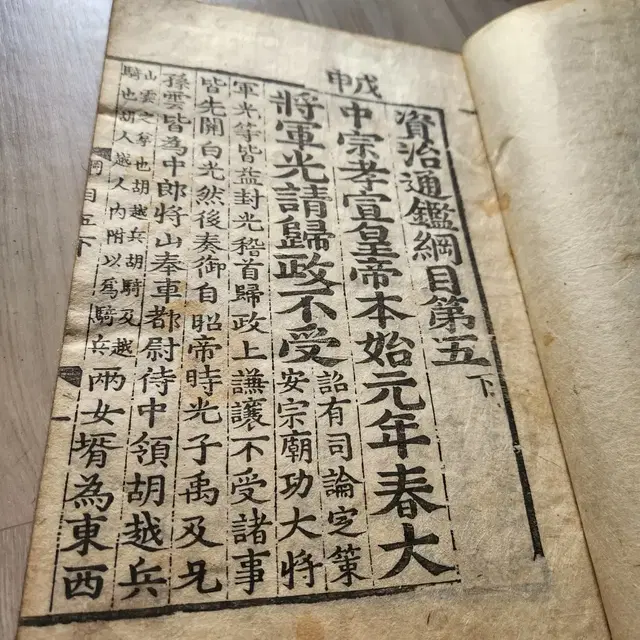 戊申
資治通鑑綱目第五下
中宗孝宣皇帝本始元年春大
將軍光請歸政不受
詔有司論定策
安宗廟功大將
軍光等皆益封光稽首歸政上謙讓不受諸事
皆先關白光然後奏御自昭帝時光子禹及兄
孫雲皆爲中郎將山奉車都尉侍中領胡越兵
山雲之也胡越兵胡騎及越
騎也胡人越人内附以爲騎兵
兩女壻為東西
綱目五下
一